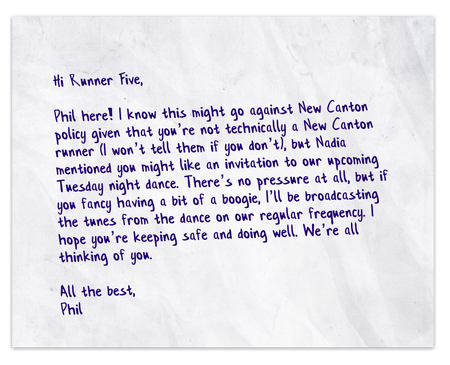 Hi Runner Five,
Phil here! I know this might go against New Canton
policy given that you're not technically a New Canton
runner (I won't tell them if you don't), but Nadia
mentioned you might like an invitation to our upcoming
Tuesday night dance. There's no pressure at all, but if
you fancy having a bit of a boogie, I'll be broadcasting
the tunes from the dance on our regular frequency. I
hope you're keeping safe and doing well. We're all
thinking of you.
All the best,
Phil